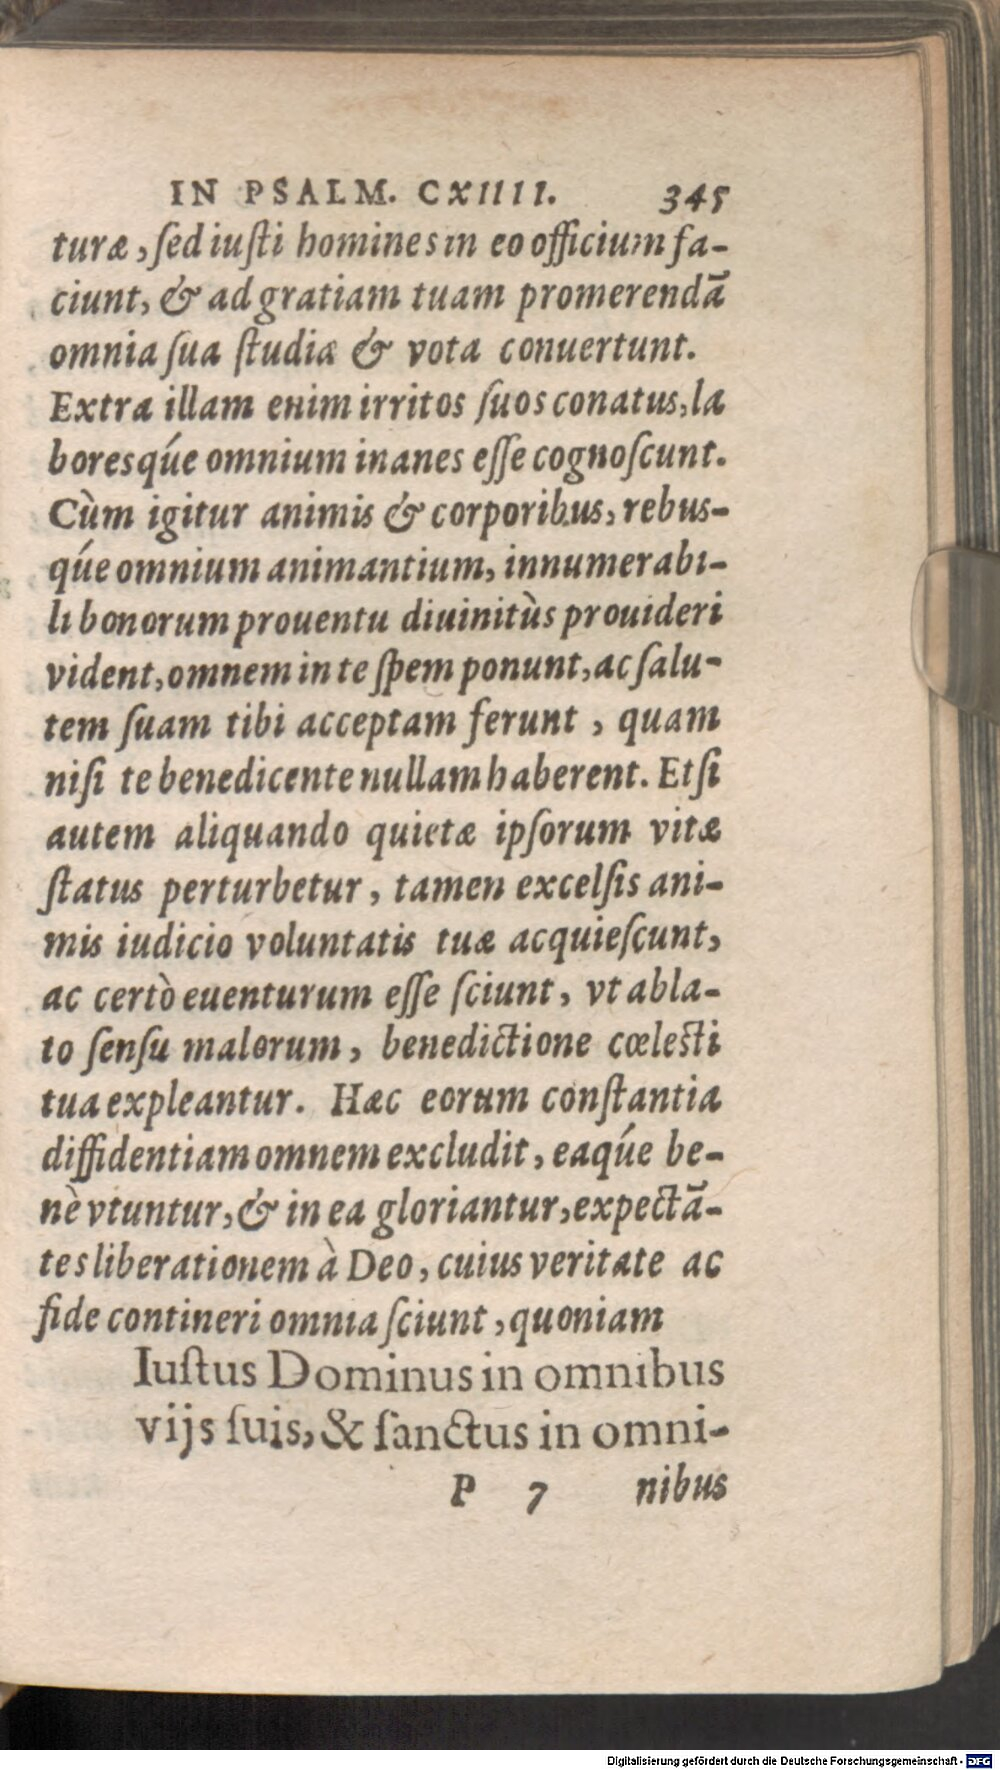 IN PSALM. CXIIII. 345
turæ, ſed iuſti homines in eo officium fa-
ciunt, & ad gratiam tuam promerendã
omnia ſua ſtudia & vota conuertunt.
Extra illam enim irritos ſuos conatus, la
boresq́ue omnium inanes eſſe cognoſcunt.
Cùm igitur animis & corporibus, rebus-
q́ue omnium animantium, innumerabi-
li bonorum prouentu diuinitùs prouideri
vident, omnem in te ſpem ponunt, ac ſalu-
tem ſuam tibi acceptam ferunt, quam
niſi te benedicente nullam haberent. Etſi
autem aliquando quietæ ipſorum vitæ
ſtatus perturbetur, tamen excelſis ani-
mis iudicio voluntatis tuæ acquieſcunt,
ac certò euenturum eſſe ſciunt, vt abla-
to ſenſu malorum, benedictione cœleſti
tua expleantur. Hæc eorum conſtantia
diffidentiam omnem excludit, eaq́ue be-
nè vtuntur, & in ea gloriantur, expectã-
tes liberationem à Deo, cuius veritate ac
fide contineri omnia ſciunt, quoniam
Iuſtus Dominus in omnibus
vijs ſuis, & ſanctus in omni-
P 7 nibus
Digitalisierung gefördert durch die Deutsche Forschungsgemeinschaft - DFG